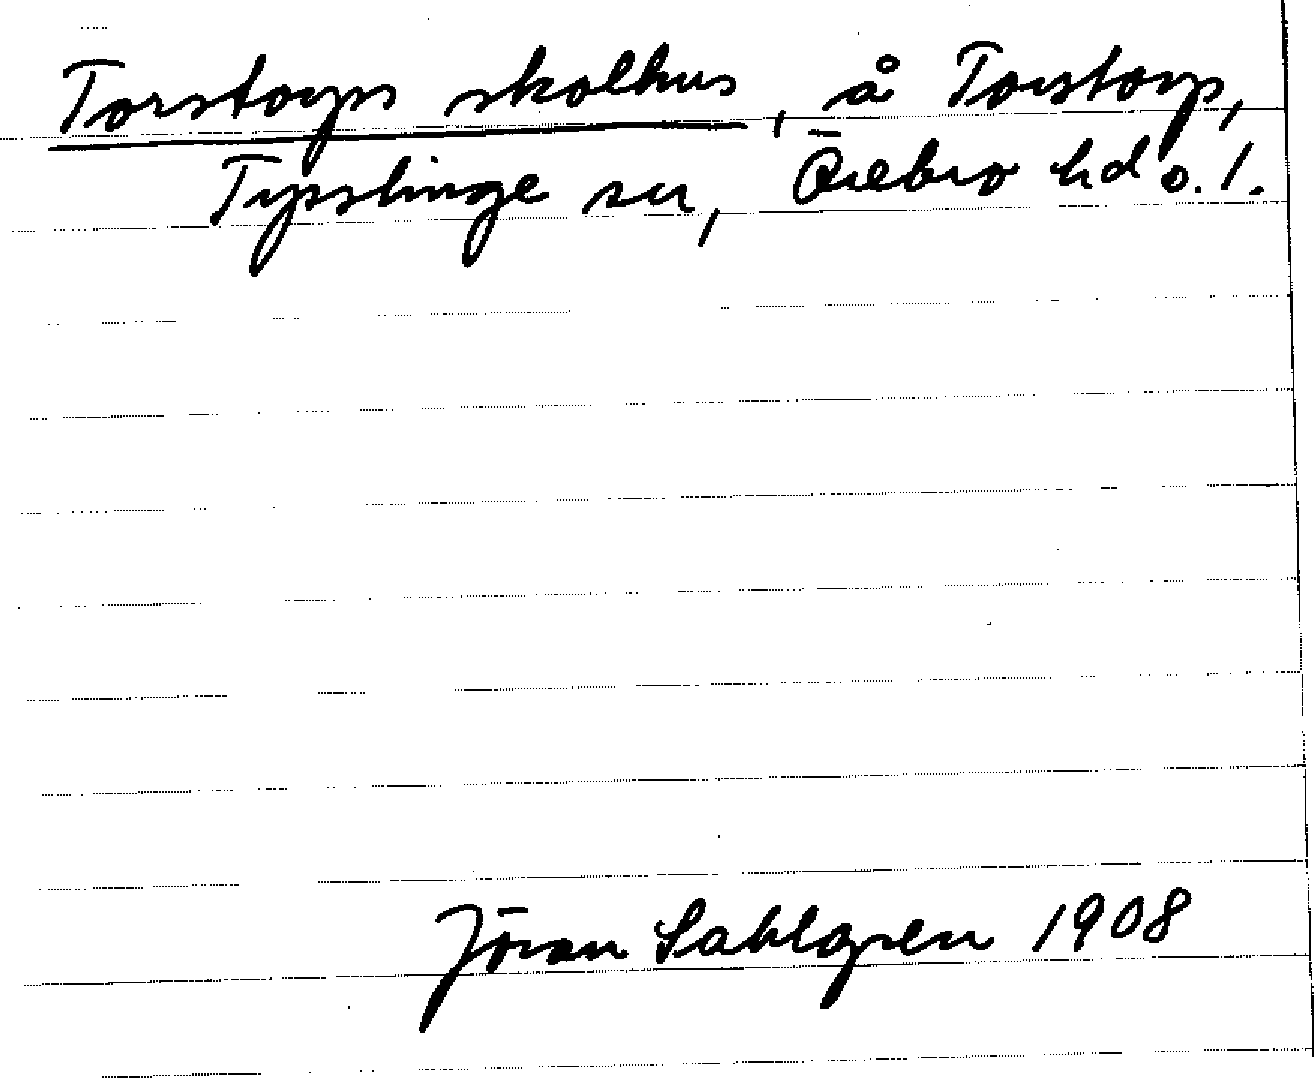 Torstorps skolhus, å Torstorp,
Tysslinge sn, Örebro hd o. l.
Jöran Sahlgren 1908